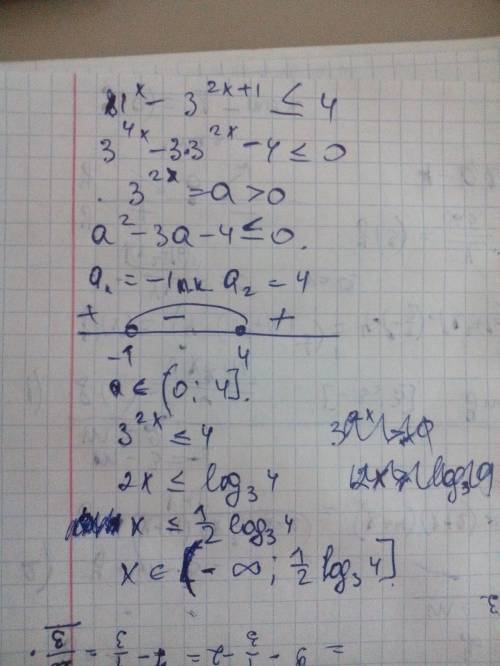 81^x - 3^{2x+1} ≤ 4
3^{4x} - 3·3^{2x} - 4 ≤ 0
3^{2x} = a > 0
a² - 3a - 4 ≤ 0.
a₁ = -1 пк a₂ = 4
+ - +
-1 4
a ∈ (0; 4].
3^{2x} ≤ 4
2x ≤ log₃ 4
x ≤ 1/2 log₃ 4
x ∈ (-∞; 1/2 log₃ 4]